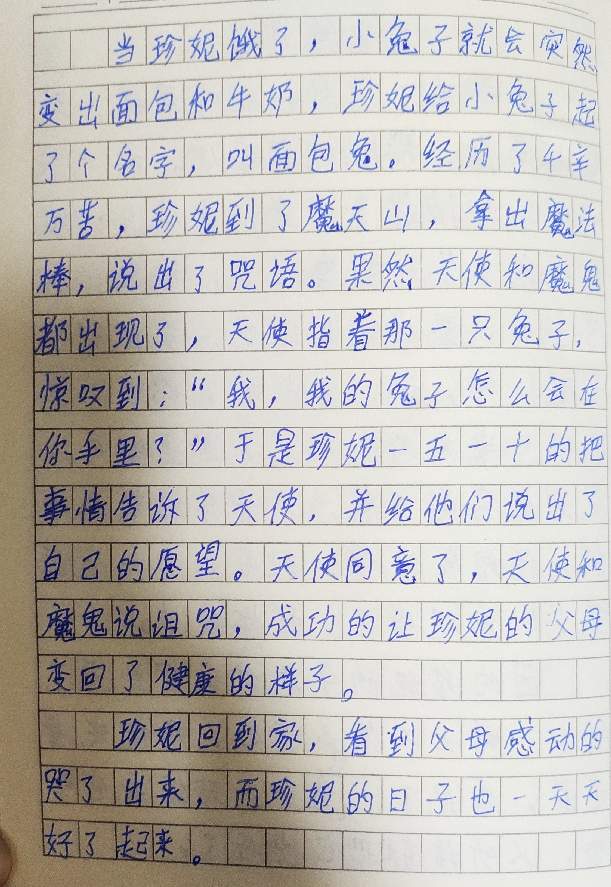 当珍妮饿了，小兔子就会突然
变出面包和牛奶，珍妮给小兔子起
了个名字，叫面包兔。经历了千辛
万苦，珍妮到了魔天山，拿出魔法
棒，说出了咒语。果然，天使和魔鬼
都出现了，天使指着那一只兔子，
惊叹到：“我，我的兔子怎么会在
你手里？”于是珍妮一五一十的把
事情告诉了天使，并给他们说出了
自己的愿望。天使同意了，天使和
魔鬼说诅咒，成功的让珍妮的父母
变回了健康的样子。
珍妮回到家，看到父母感动的
哭了出来，而珍妮的日子也一天天
好了起来。